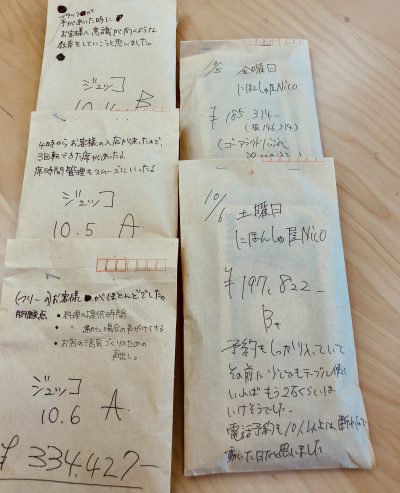 スタッフが
手があいた時に
お客様へ意識が向くような
教育をしていこうと思いました。
ジュッコ
10.4 B
4時からお客様の入店があったので、
3回転できた席があったよ
席時間管理もスムーズにいったよ!
ジュッコ
10.5 A
(フリーの)お客様がほとんどでした。
問題点
・料理の提供時間
・〃 遅れた場合の声がけする
・お店の活気づくりのための
声出し。
ジュッコ
10.6 A
¥334.427-
10/5 金曜日
にほんしゅ屋Nico
¥185.314-
10/6 土曜日
にほんしゅ屋Nico
¥197.822-
B+
予約もしっかり入っていて
その前に少しでもテーブル使って
いればもう2万くらいは
いけそうでした。
電話予約も10人以上は断わるので
動いた日だと思いました